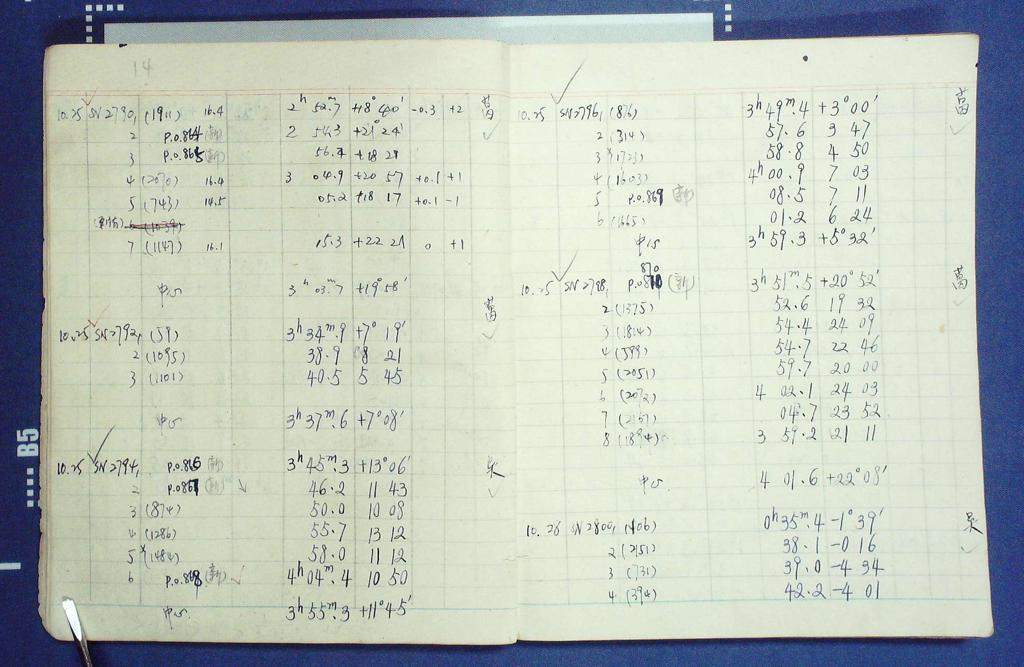 14
10.25 SN2790, (1911) 16.4 2ʰ 52.7 +18° 40′ -0.3 +2 萬
2 P.O.864 (新) 2 54.3 +21° 24′
3 P.O.865 (新) 56.4 +18 29
4 (2070) 16.4 3 04.9 +20 57 +0.1 +1
5 (743) 14.5 05.2 +18 17 +0.1 -1
7 (1147) 16.1 15.3 +22 21 0 +1
中心 3ʰ 03ᵐ.7 +19° 58′
萬
10.25 SN2792, (59) 3ʰ 34ᵐ.9 +7° 19′
2 (1095) 38.9 8 21
3 (1101) 40.5 5 45
中心 3ʰ 37ᵐ.6 +7° 08′
10.25 SN2794, P.O.866 (新) 3ʰ 45ᵐ.3 +13° 06′ 吴
2 P.O.867 (新) 46.2 11 43
3 (874) 50.0 10 09
4 (1286) 55.7 13 12
5 (1484) 58.0 11 12
6 P.O.868 (新) 4ʰ 04ᵐ.4 10 50
中心 3ʰ 55ᵐ.3 +11° 45′
10.25 SN2796, (876) 3ʰ 49ᵐ.4 +3° 00′ 萬
2 (314) 57.6 3 47
3 (1723) 58.8 4 50
4 (1603) 4ʰ 00.9 7 03
5 P.O.869 (新) 08.5 7 11
6 (1665) 01.2 6 24
中心 3ʰ 59.3 +5° 32′
870
10.25 SN2798, P.O.870 (新) 3ʰ 51ᵐ.5 +20° 52′ 萬
2 (1375) 52.6 19 32
3 (1814) 54.4 24 09
4 (599) 54.7 22 46
5 (2051) 59.7 20 00
6 (2072) 4 02.1 24 03
7 (2167) 04.7 23 52
8 (1894) 3 59.2 21 11
中心 4 01.6 +22° 08′
10.26 SN2800, (1406) 0ʰ 35ᵐ.4 -1° 39′ 吴
2 (2151) 38.1 -0 16
3 (731) 39.0 -4 34
4 (394) 42.2 -4 01
B5